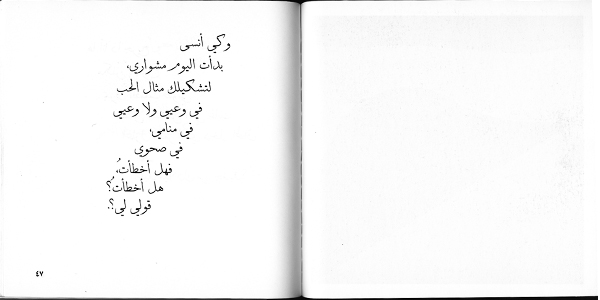 وكي أنسى
بدأت اليوم مشواري،
لتشكيلك مثال الحب
في وعيي ولا وعيي
في منامي،
في صحوي
فهل أخطأتُ،
هل أخطأتُ؟
قولي لي؟.
٤٧